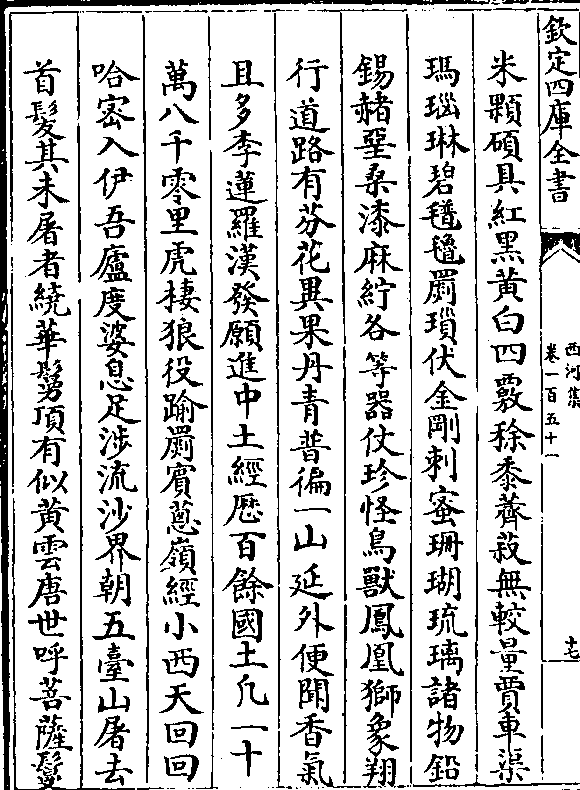 欽定四庫全書
西河集
卷一百五十一
十七
米顆碩具紅黑黄白四覈稌黍薺菽無較量賈車渠
瑪瑙琳碧氍氀罽瑣伏金剛刺蜜珊瑚琉璃諸物鉛
錫赭堊桑漆麻紵各等器仗珍怪鳥獸鳳凰獅象翔
行道路有芬花異果丹青普徧一山延外便聞香氣
且多李蓮羅漢發願進中土經歴百餘國土凡一十
萬八千零里虎棲狼役踰罽賓蔥嶺經小西天回回
哈密入伊吾廬度婆息足涉流沙界朝五臺山屠去
首髪其未屠者繞華鬘頂有似黄雲唐世呼菩薩鬘